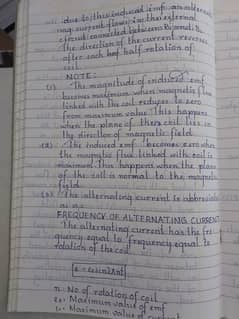 due to this induced emf an alternat
ing current flows in the external
circuit connected between B₁ and B₂
The direction of the current reverses
after each half rotation of
coil.
NOTE:
(1) The magnitude of induced emf
becomes maximum when magnetic flux
linked with the coil reduces to zero
from maximum value. This happens
when the plane of the coil lies in
the direction of magnetic field.
(2) The induced emf becomes zero when
the magnetic flux linked with coil is
maximum. This happens when the plane
of the coil is normal to the magnetic
field.
The alternating current is abbreviate
as ac
FREQUENCY OF ALTERNATING CURRENT
The alternating current has the fre
quency equal to frequency equal to
rotation of the coil
n = No of rotation of coil
e₀ = Maximum value of emf
Maximum value of current